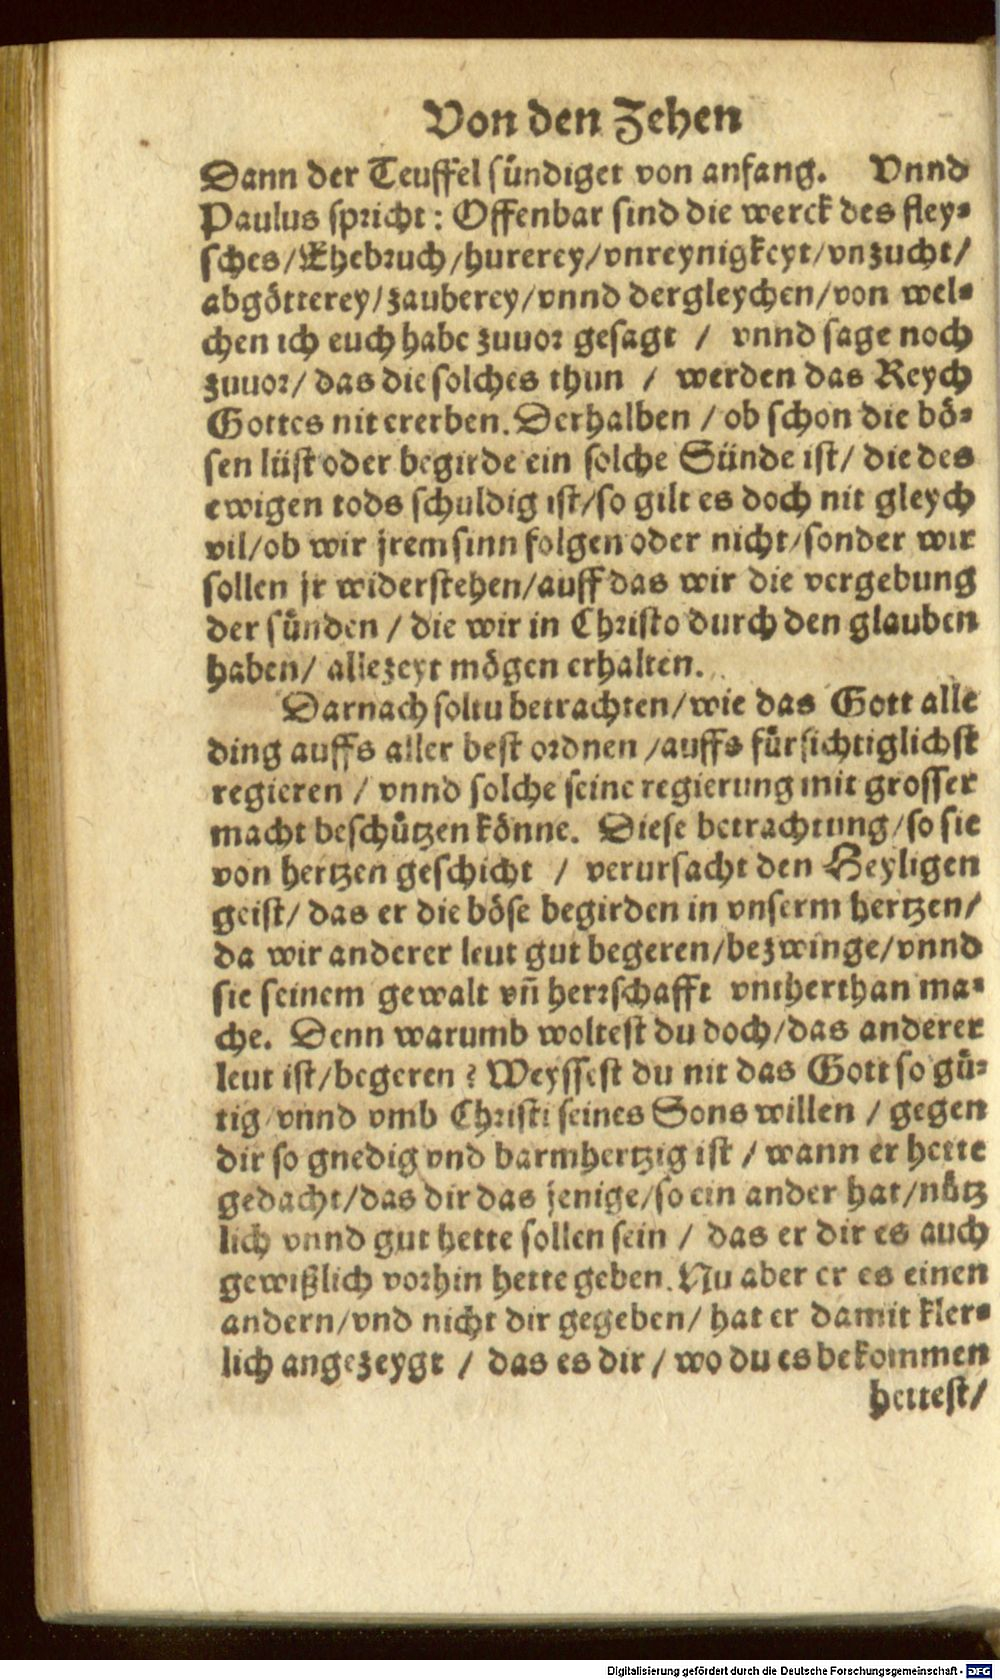 Von den Zehen
Dann der Teuffel sündiget von anfang. Vnnd
Paulus spricht: Offenbar sind die werck des fley-
sches/Ehebruch/hurerey/vnreynigkeyt/vnzucht/
abgötterey/zauberey/vnnd dergleychen/von wel-
chen ich euch habe zuuor gesagt / vnnd sage noch
zuuor/ das die solches thun / werden das Reych
Gottes nit ererben. Derhalben / ob schon die bö-
sen lüst oder begirde ein solche Sünde ist/ die des
ewigen tods schuldig ist/so gilt es doch nit gleych
vil/ob wir jrem sinn folgen oder nicht/sonder wir
sollen jr widerstehen/auff das wir die vergebung
der sünden / die wir in Christo durch den glauben
haben/ allezeyt mögen erhalten.
Darnach soltu betrachten/wie das Gott alle
ding auffs aller best ordnen /auffs fürsichtiglichst
regieren / vnnd solche seine regierung mit grosser
macht beschützen könne. Diese betrachtung/so sie
von hertzen geschicht / verursacht den Heyligen
geist/ das er die böse begirden in vnserm hertzen/
da wir anderer leut gut begeren/bezwinge/vnnd
sie seinem gewalt vñ herrschafft vntherthan ma-
che. Denn warumb woltest du doch/das anderer
leut ist/begeren? Weyssest du nit das Gott so gü-
tig/vnnd vmb Christi seines Sons willen / gegen
dir so gnedig vnd barmhertzig ist / wann er hette
gedacht/das dir das jenige/so ein ander hat/nütz
lich vnnd gut hette sollen sein / das er dir es auch
gewißlich vorhin hette geben. Nu aber er es einen
andern/vnd nicht dir gegeben/ hat er damit kler-
lich angezeygt / das es dir / wo du es bekommen
hettest/
Digitalisierung gefördert durch die Deutsche Forschungsgemeinschaft - DFG